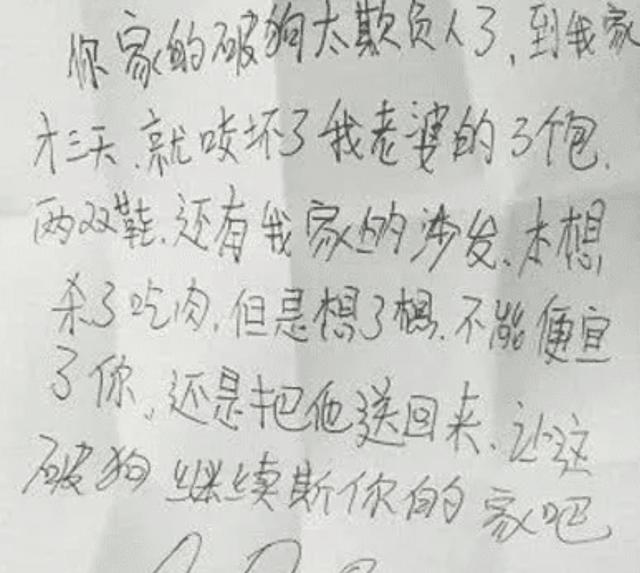 你家的破狗太欺负人了，到我家
才三天、就咬坏了我老婆的3个包、
两双鞋、还有我家的沙发、本想
杀了吃肉、但是想了想、不能便宜
了你、还是把他送回来、让这
破狗继续斯你的家吧